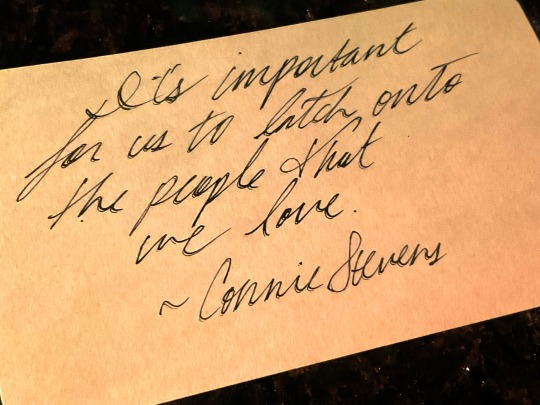 It's important
for us to latch onto
the people that
we love.
~ Connie Stevens